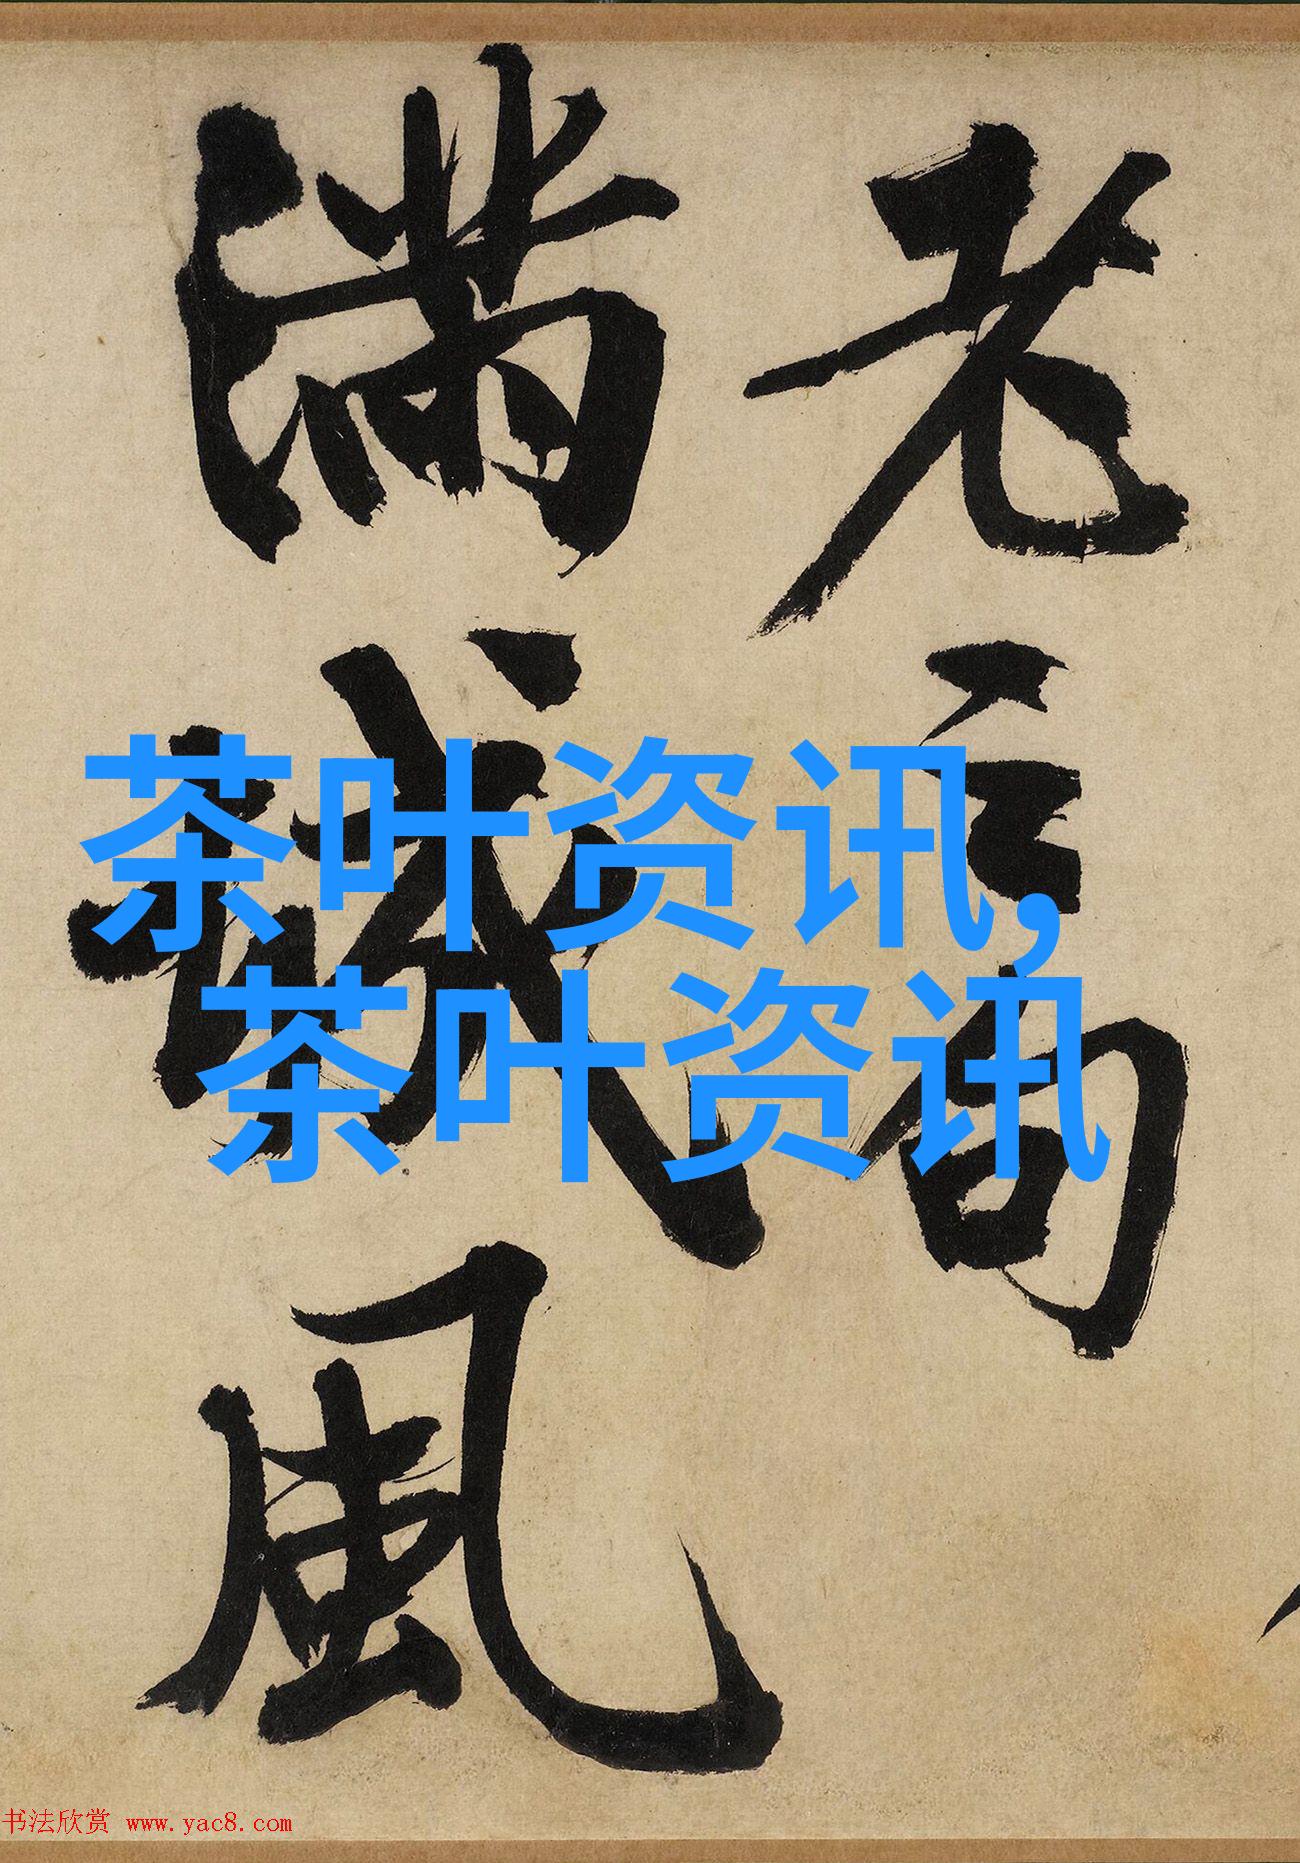 老高
滿城風
茶叶资讯,
茶叶资讯
书法欣赏 www.yac8.com